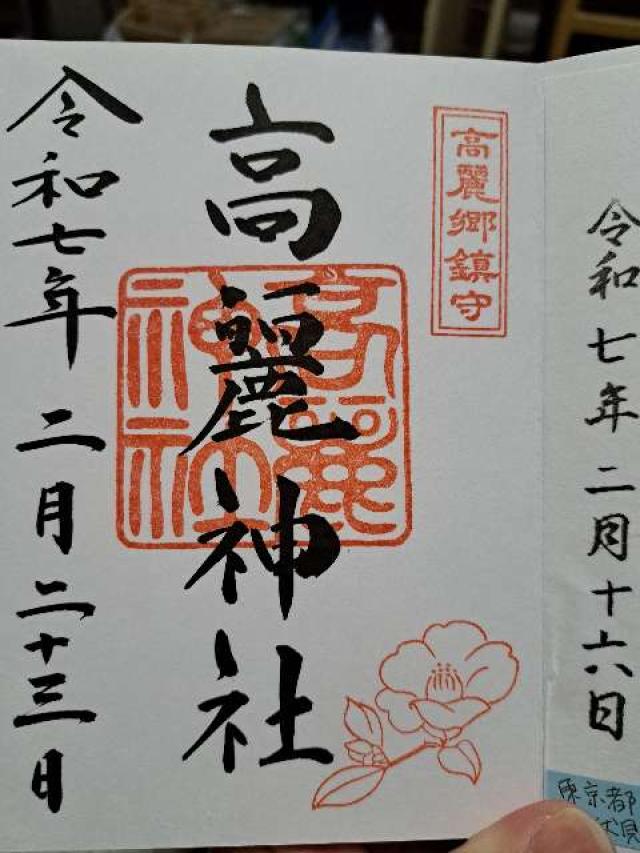 令和七年二月十六日
高麗郷鎮守
高麗神社
令和七年二月二十三日
京都
伏見